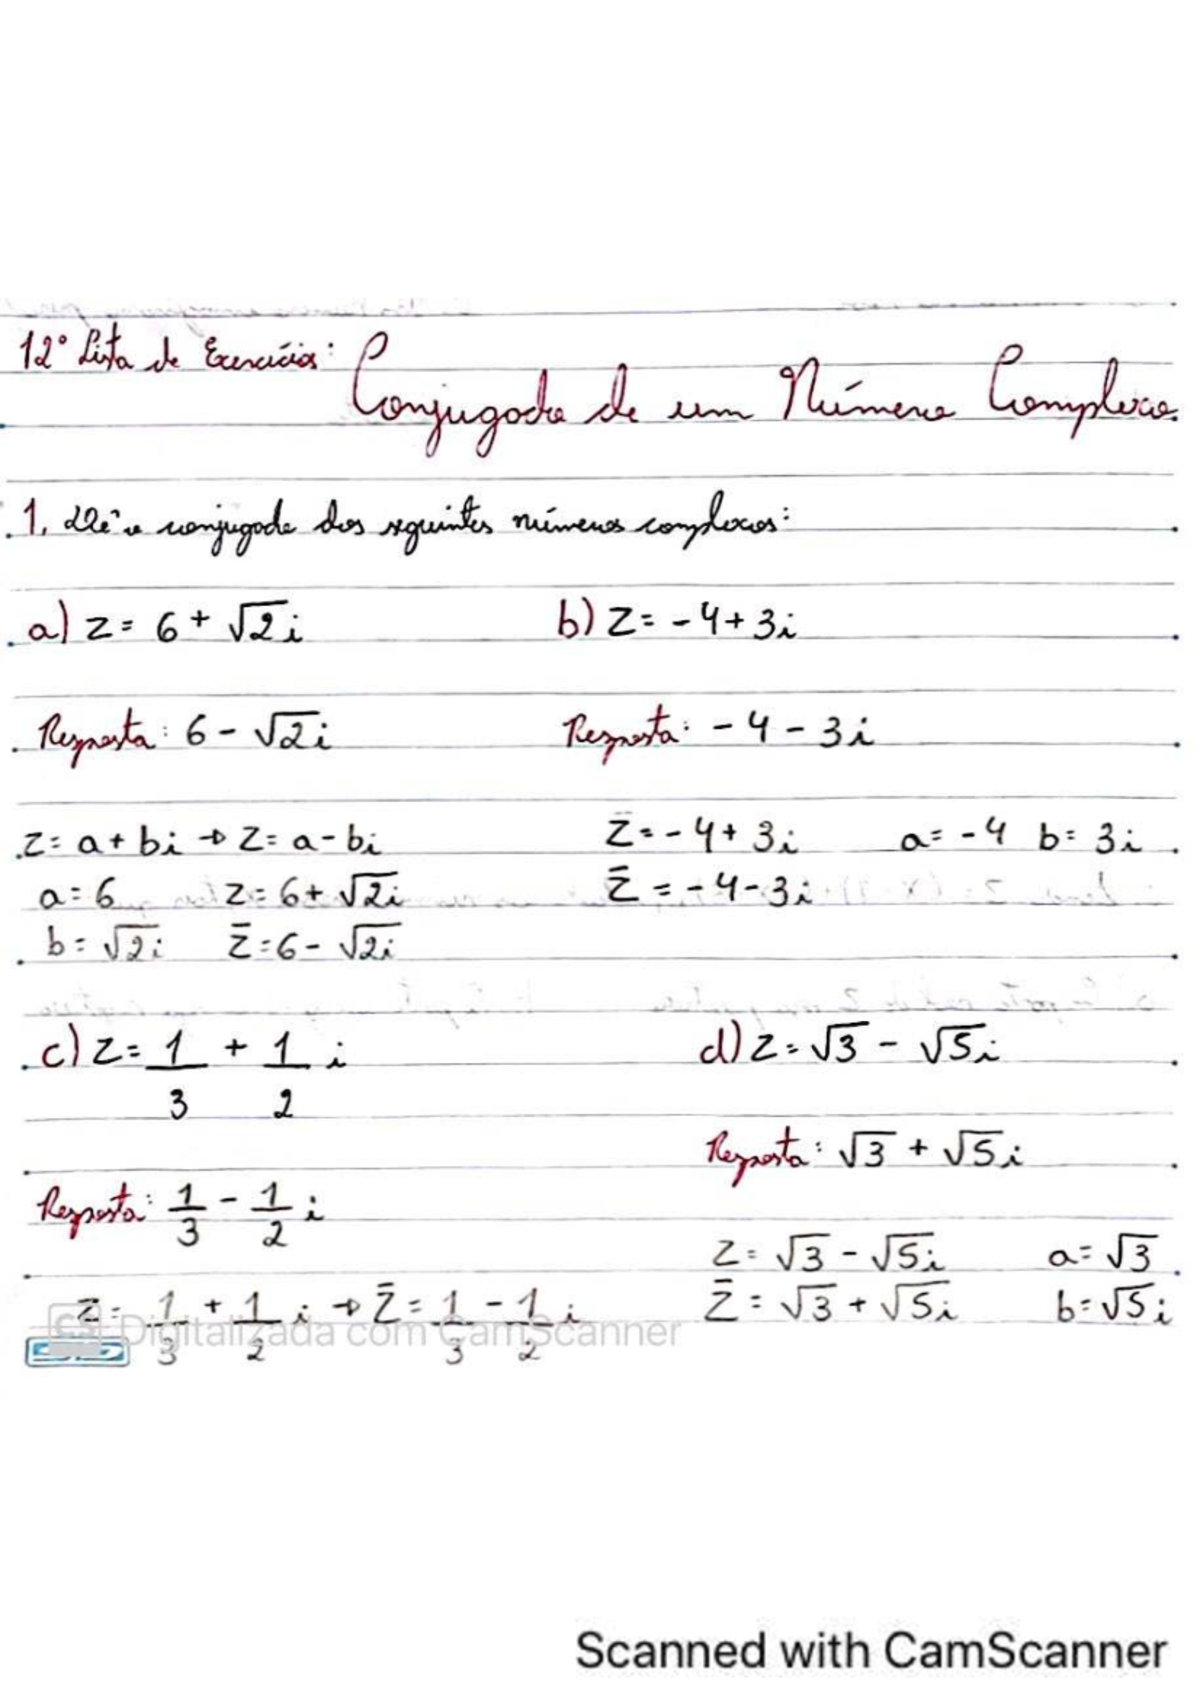 12° Lista de Exercícios:
Conjugado de um Número Complexo.
1. Dê o conjugado dos seguintes números complexos:
a) z = 6 + √2i b) z = -4 + 3i
Resposta: 6 - √2i Resposta: -4 - 3i
z = a + bi → z = a - bi z̄ = -4 + 3i a = -4 b = 3i
a = 6 z = 6 + √2i z̄ = -4 - 3i
b = √2i z̄ = 6 - √2i
c) z = 1/3 + 1/2 i d) z = √3 - √5i
Resposta: √3 + √5i
Resposta: 1/3 - 1/2 i
z = √3 - √5i a = √3
z̄ = 1/3 + 1/2 i → z̄ = 1/3 - 1/2 i z̄ = √3 + √5i b = √5i
CS Digitalizada com CamScanner
Scanned with CamScanner